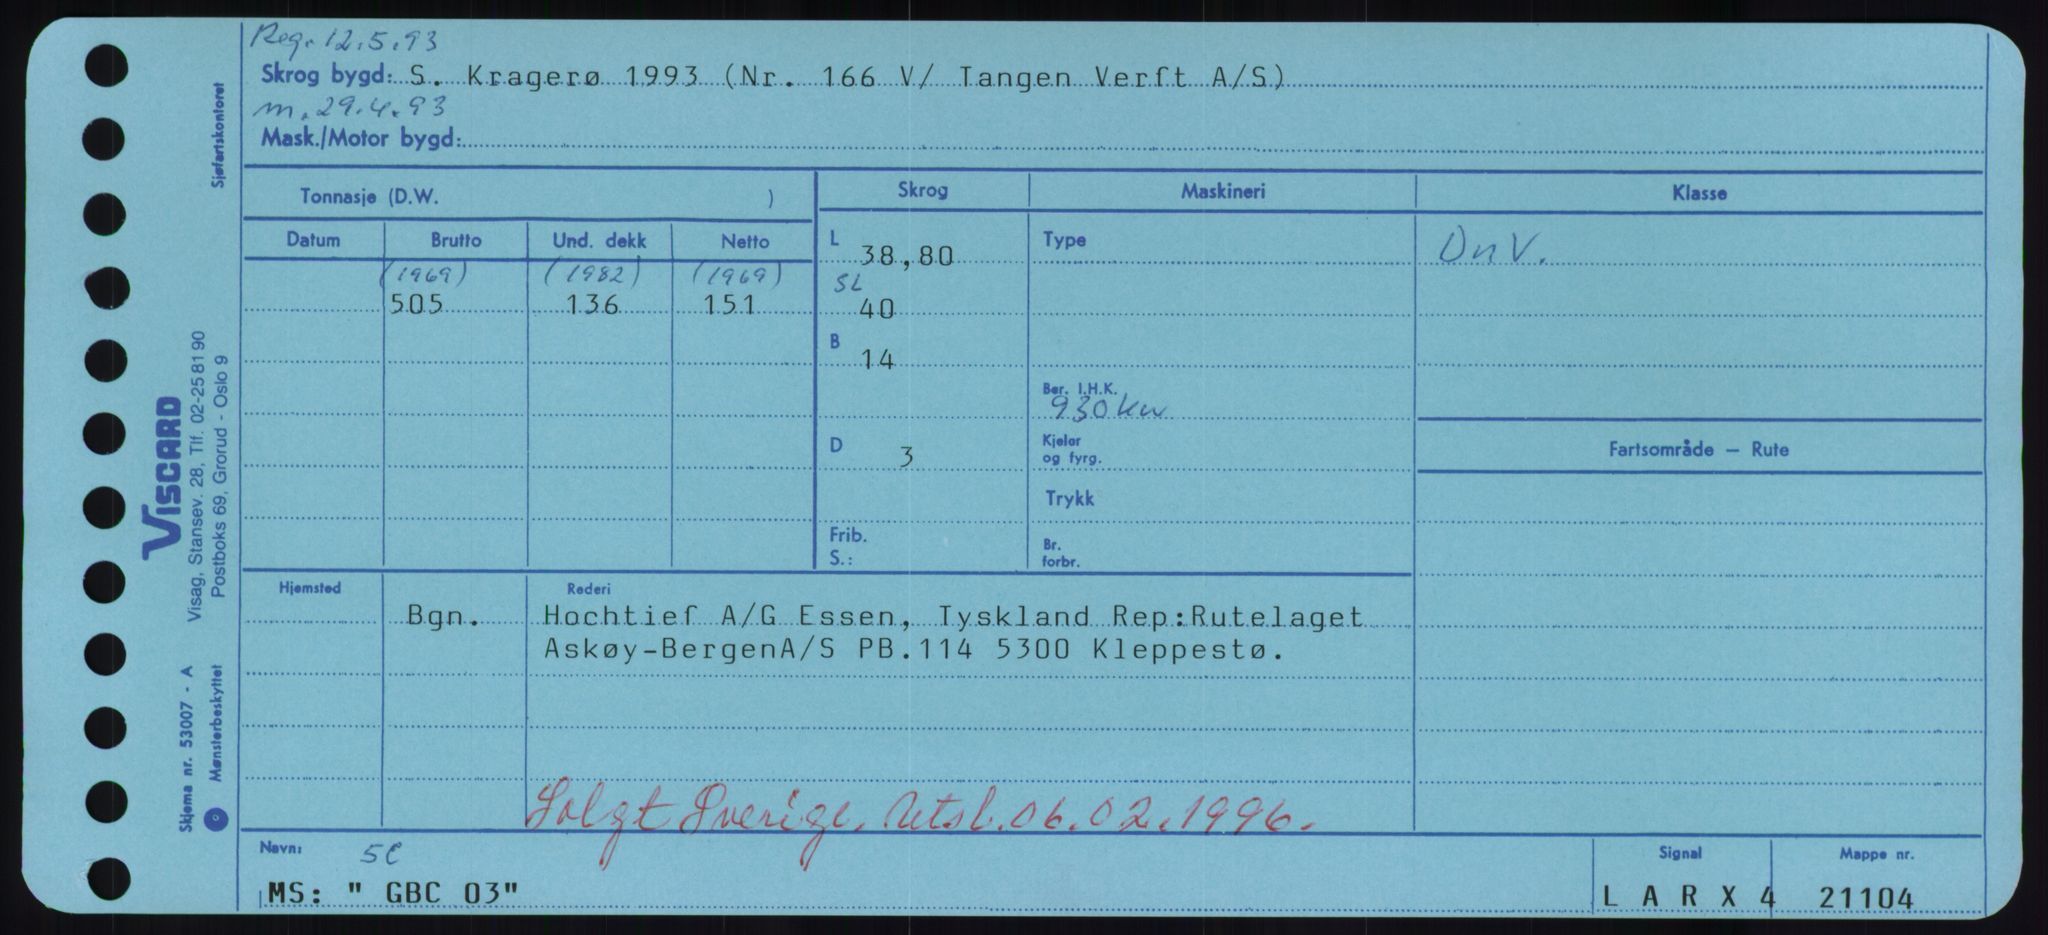 Reg. 12.5.93
Skrog bygd: S. Kragerø 1993 (Nr. 166 V/ Tangen Verft A/S)
m. 29.4.93
Mask./Motor bygd:
Tonnasje (D.W. )
Skrog
Maskineri
Klasse
Datum Brutto Und. dekk Netto
L 38,80
Type
DnV.
(1969) (1982) (1969)
505 136 151
SL
40
B
14
Ber. I.H.K.
930 kw
D 3
Kjelar
og fyrg.
Fartsområde — Rute
Trykk
Frib.
S.:
Br.
forbr.
Hjemsted
Rederi
Bgn. Hochtief A/G Essen, Tyskland Rep:Rutelaget
Askøy-BergenA/S PB.114 5300 Kleppestø.
Solgt Sverige. Utsl. 06.02.1996.
Navn: Signal Mappe nr.
MS: " GBC 03" L A R X 4 21104
Sjøfartskontoret
VISCARD
Visag, Stansev. 28, Tlf. 02-25 81 90
Postboks 69, Grorud - Oslo 9
Skjema nr. 53007 - A
Mønsterbeskyttet